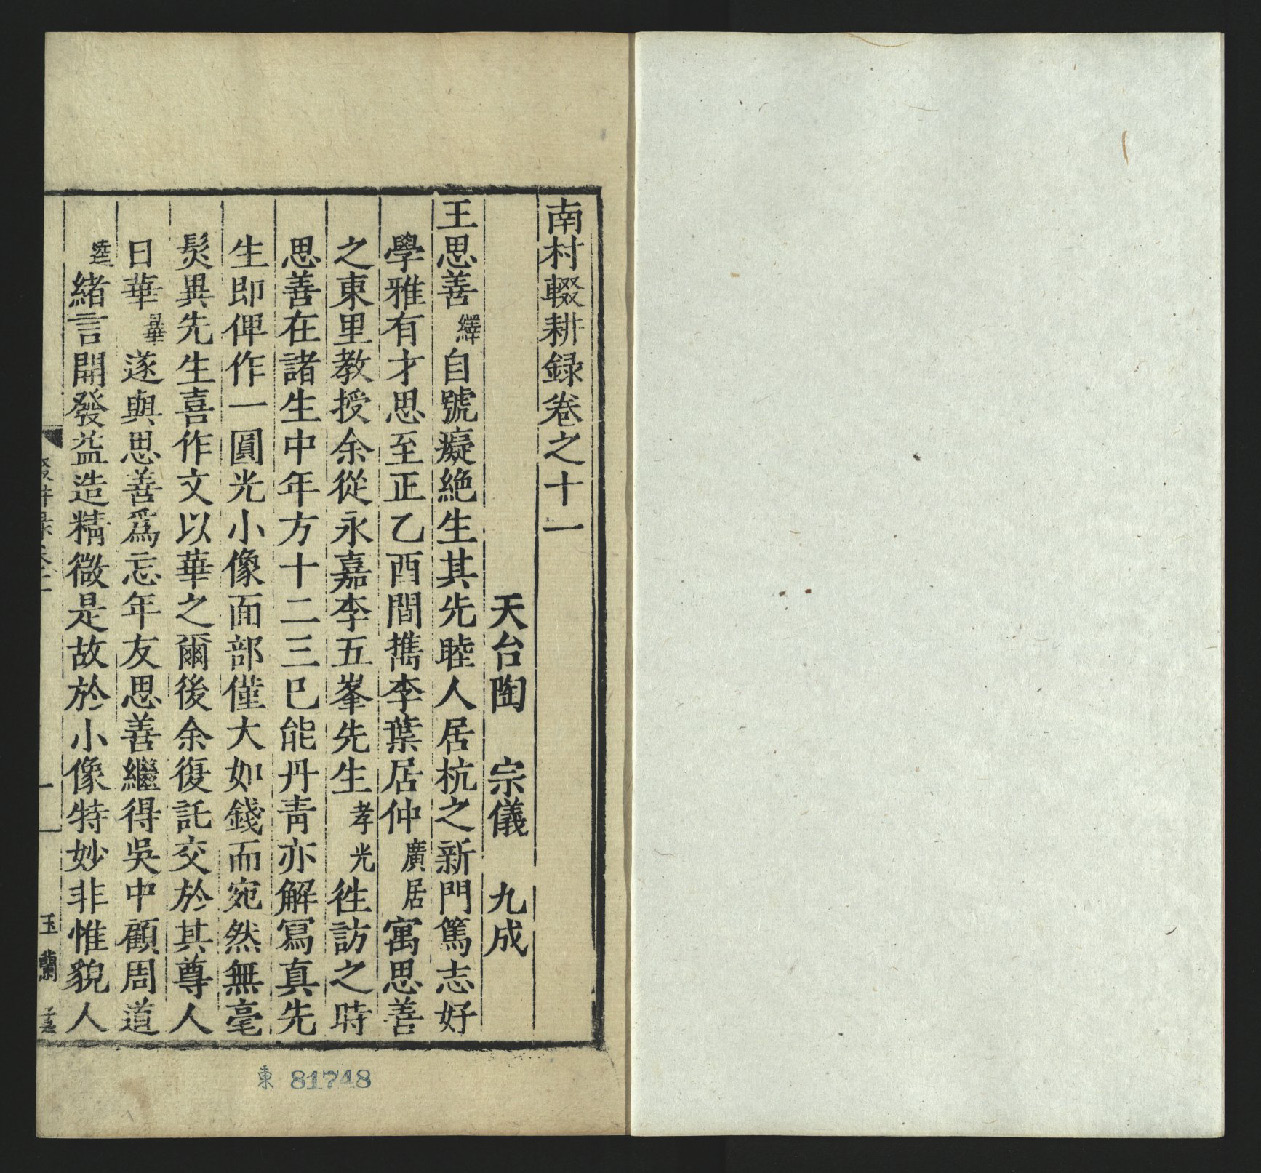 南村輟耕録卷之十一
天台陶　宗儀　九成
王思善繹自號癡絶生其先睦人居杭之新門篤志好
學雅有才思至正乙酉間攜李葉居仲廣居寓思善
之東里教授余從永嘉李五峯先生孝光徃訪之時
思善在諸生中年方十二三已能丹青亦解冩真先
生即俾作一圓光小像面部僅大如錢而宛然無毫
髮異先生喜作文以華之爾後余復託交於其尊人
日華曄遂與思善爲忘年友思善繼得吳中顧周道
逵緒言開發益造精微是故於小像特妙非惟貌人
一
玉蘭
東 81748